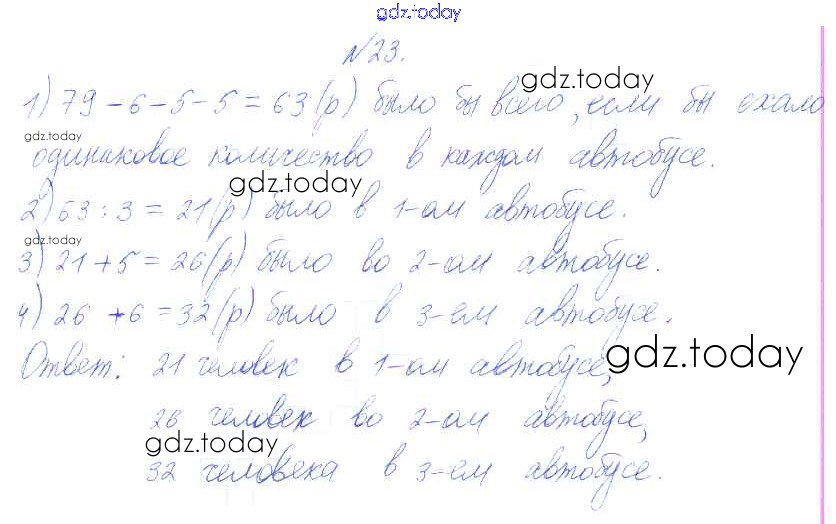 gdz.today
№23.
1) 79 - 6 - 5 - 5 = 63 (р) было бы всего, если бы ехало
gdz.today
gdz.today
одинаковое количество в каждом автобусе.
gdz.today
2) 63 : 3 = 21 (р) было в 1-ом автобусе.
gdz.today
3) 21 + 5 = 26 (р) было во 2-ом автобусе.
4) 26 + 6 = 32 (р) было в 3-ем автобусе.
Ответ: 21 человек в 1-ом автобусе,
gdz.today
26 человек во 2-ом автобусе,
gdz.today
32 человека в 3-ем автобусе.